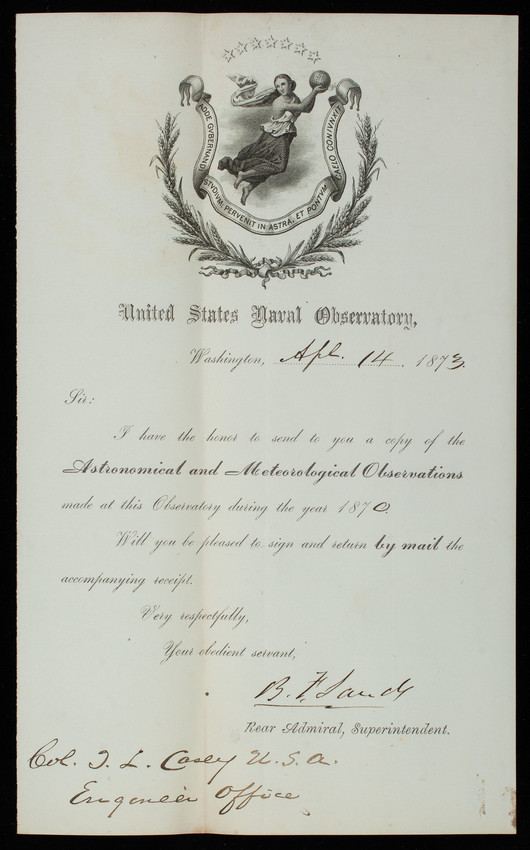 ADDE GVBERNANDI STVDIVM: PERVENIT IN ASTRA, ET PONTVM CAELO CONIVNXIT
United States Naval Observatory,
Washington, Apl. 14. 1873.
Sir:
I have the honor to send to you a copy of the
Astronomical and Meteorological Observations
made at this Observatory during the year 1870.
Will you be pleased to sign and return by mail the
accompanying receipt.
Very respectfully,
Your obedient servant,
B. F. Sands
Rear Admiral, Superintendent.
Col. T. L. Casey U.S.A.
Engineer Office